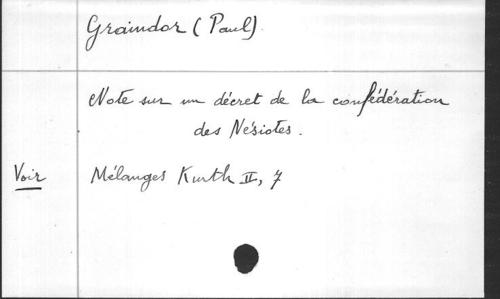 Graindor (Paul).
Note sur un décret de la confédération
des Nésiotes.
Voir Mélanges Kurth II, 7